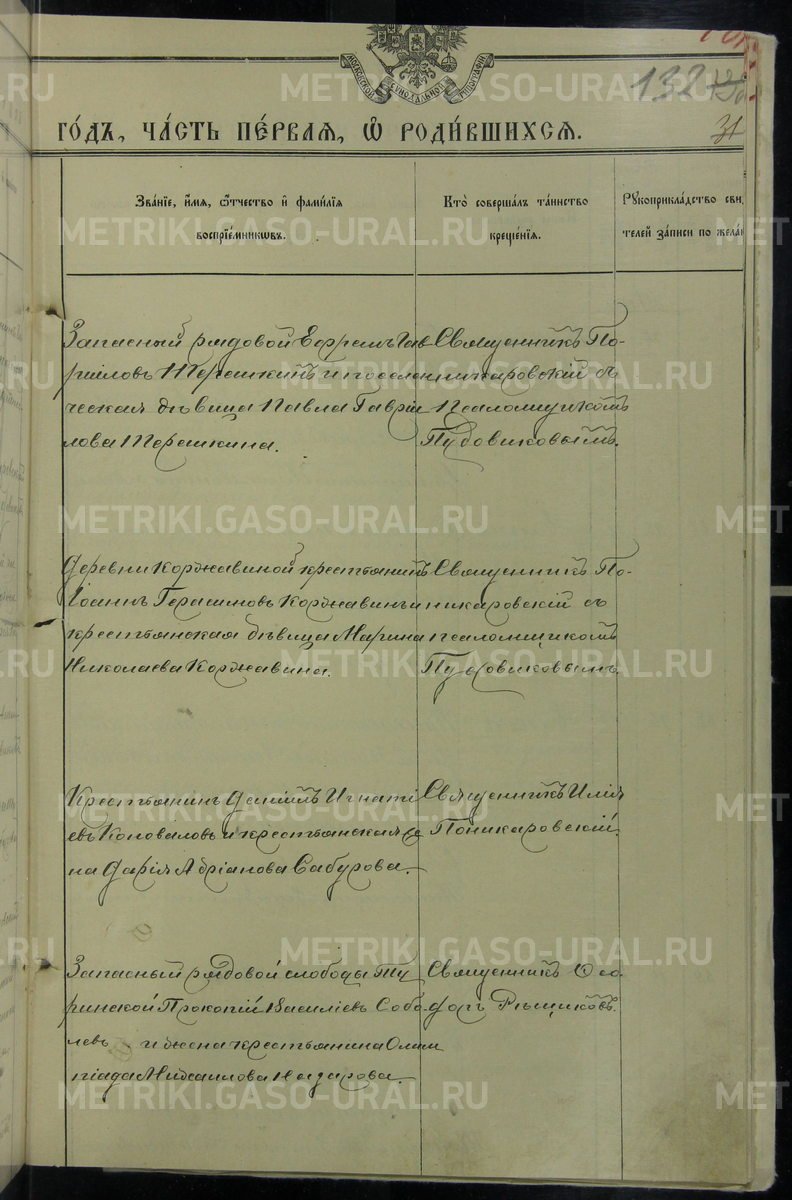 МОСКОВСКОЙ СИНОДАЛЬНОЙ ТИПОГРАФІИ
132
31
ГО́ДЪ, ЧА́СТЬ ПЕ́РВАЯ, Ѡ РОДИ́ВШИХСЯ.
Зва́нїе, и́мя, ѻ҆́тчество и҆ фами́лїя
воспрїе́мникѡвъ.
Кто̀ соверша́лъ та́инство
креще́нїя.
Рꙋкоприкла́дство сви
телей за́писи по жела
Запасный рядовой Ефремъ Гав
ріиловъ Терешкинъ и поселен
ческая дѣвица Павла Гаврі
илова Терешкина.
Священникъ По-
никаровскій съ
Псаломщикомъ
Пудовиковымъ.
Деревни Коржавиной крестьянинъ
Іоаннъ Герасимовъ Коржавинъ и
крестьянская дѣвица Марина
Николаева Коржавина.
Священникъ По-
никаровскій съ
псаломщикомъ
Пудовиковымъ.
Крестьянинъ Даніилъ Игнаті
евъ Коноваловъ и крестьянская же
на Дарія Адріанова Сабурова.
Священникъ Илія
Поникаровскій.
Запасный рядовой слободы Ту
ринской Прокопій Василіевъ Собо
левъ и жена крестьянина Олим
піада Михаилова Назарова.
Священникъ Ѳео
доръ Рѣщиковъ.
METRIKI.GASO-URAL.RU